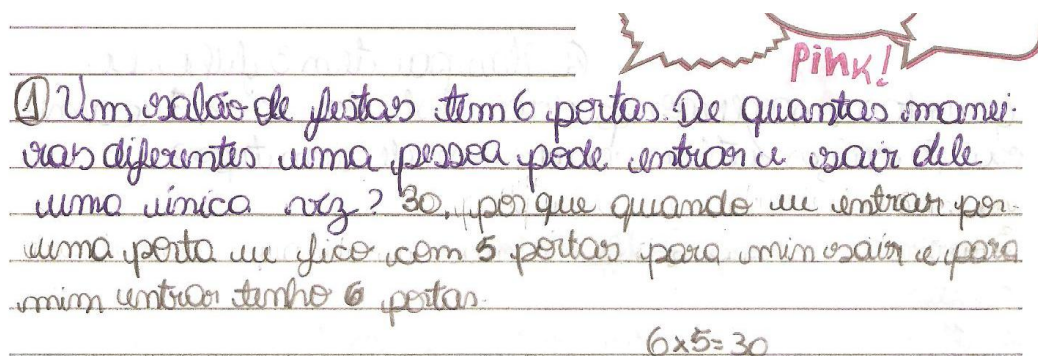 Pink!
① Um salão de festas tem 6 portas. De quantas manei-
ras diferentes uma pessoa pode entrar e sair dele
uma única vez? 30, por que quando eu entrar por
uma porta eu fico com 5 portas para min sair e para
mim entrar tenho 6 portas.
6x5=30